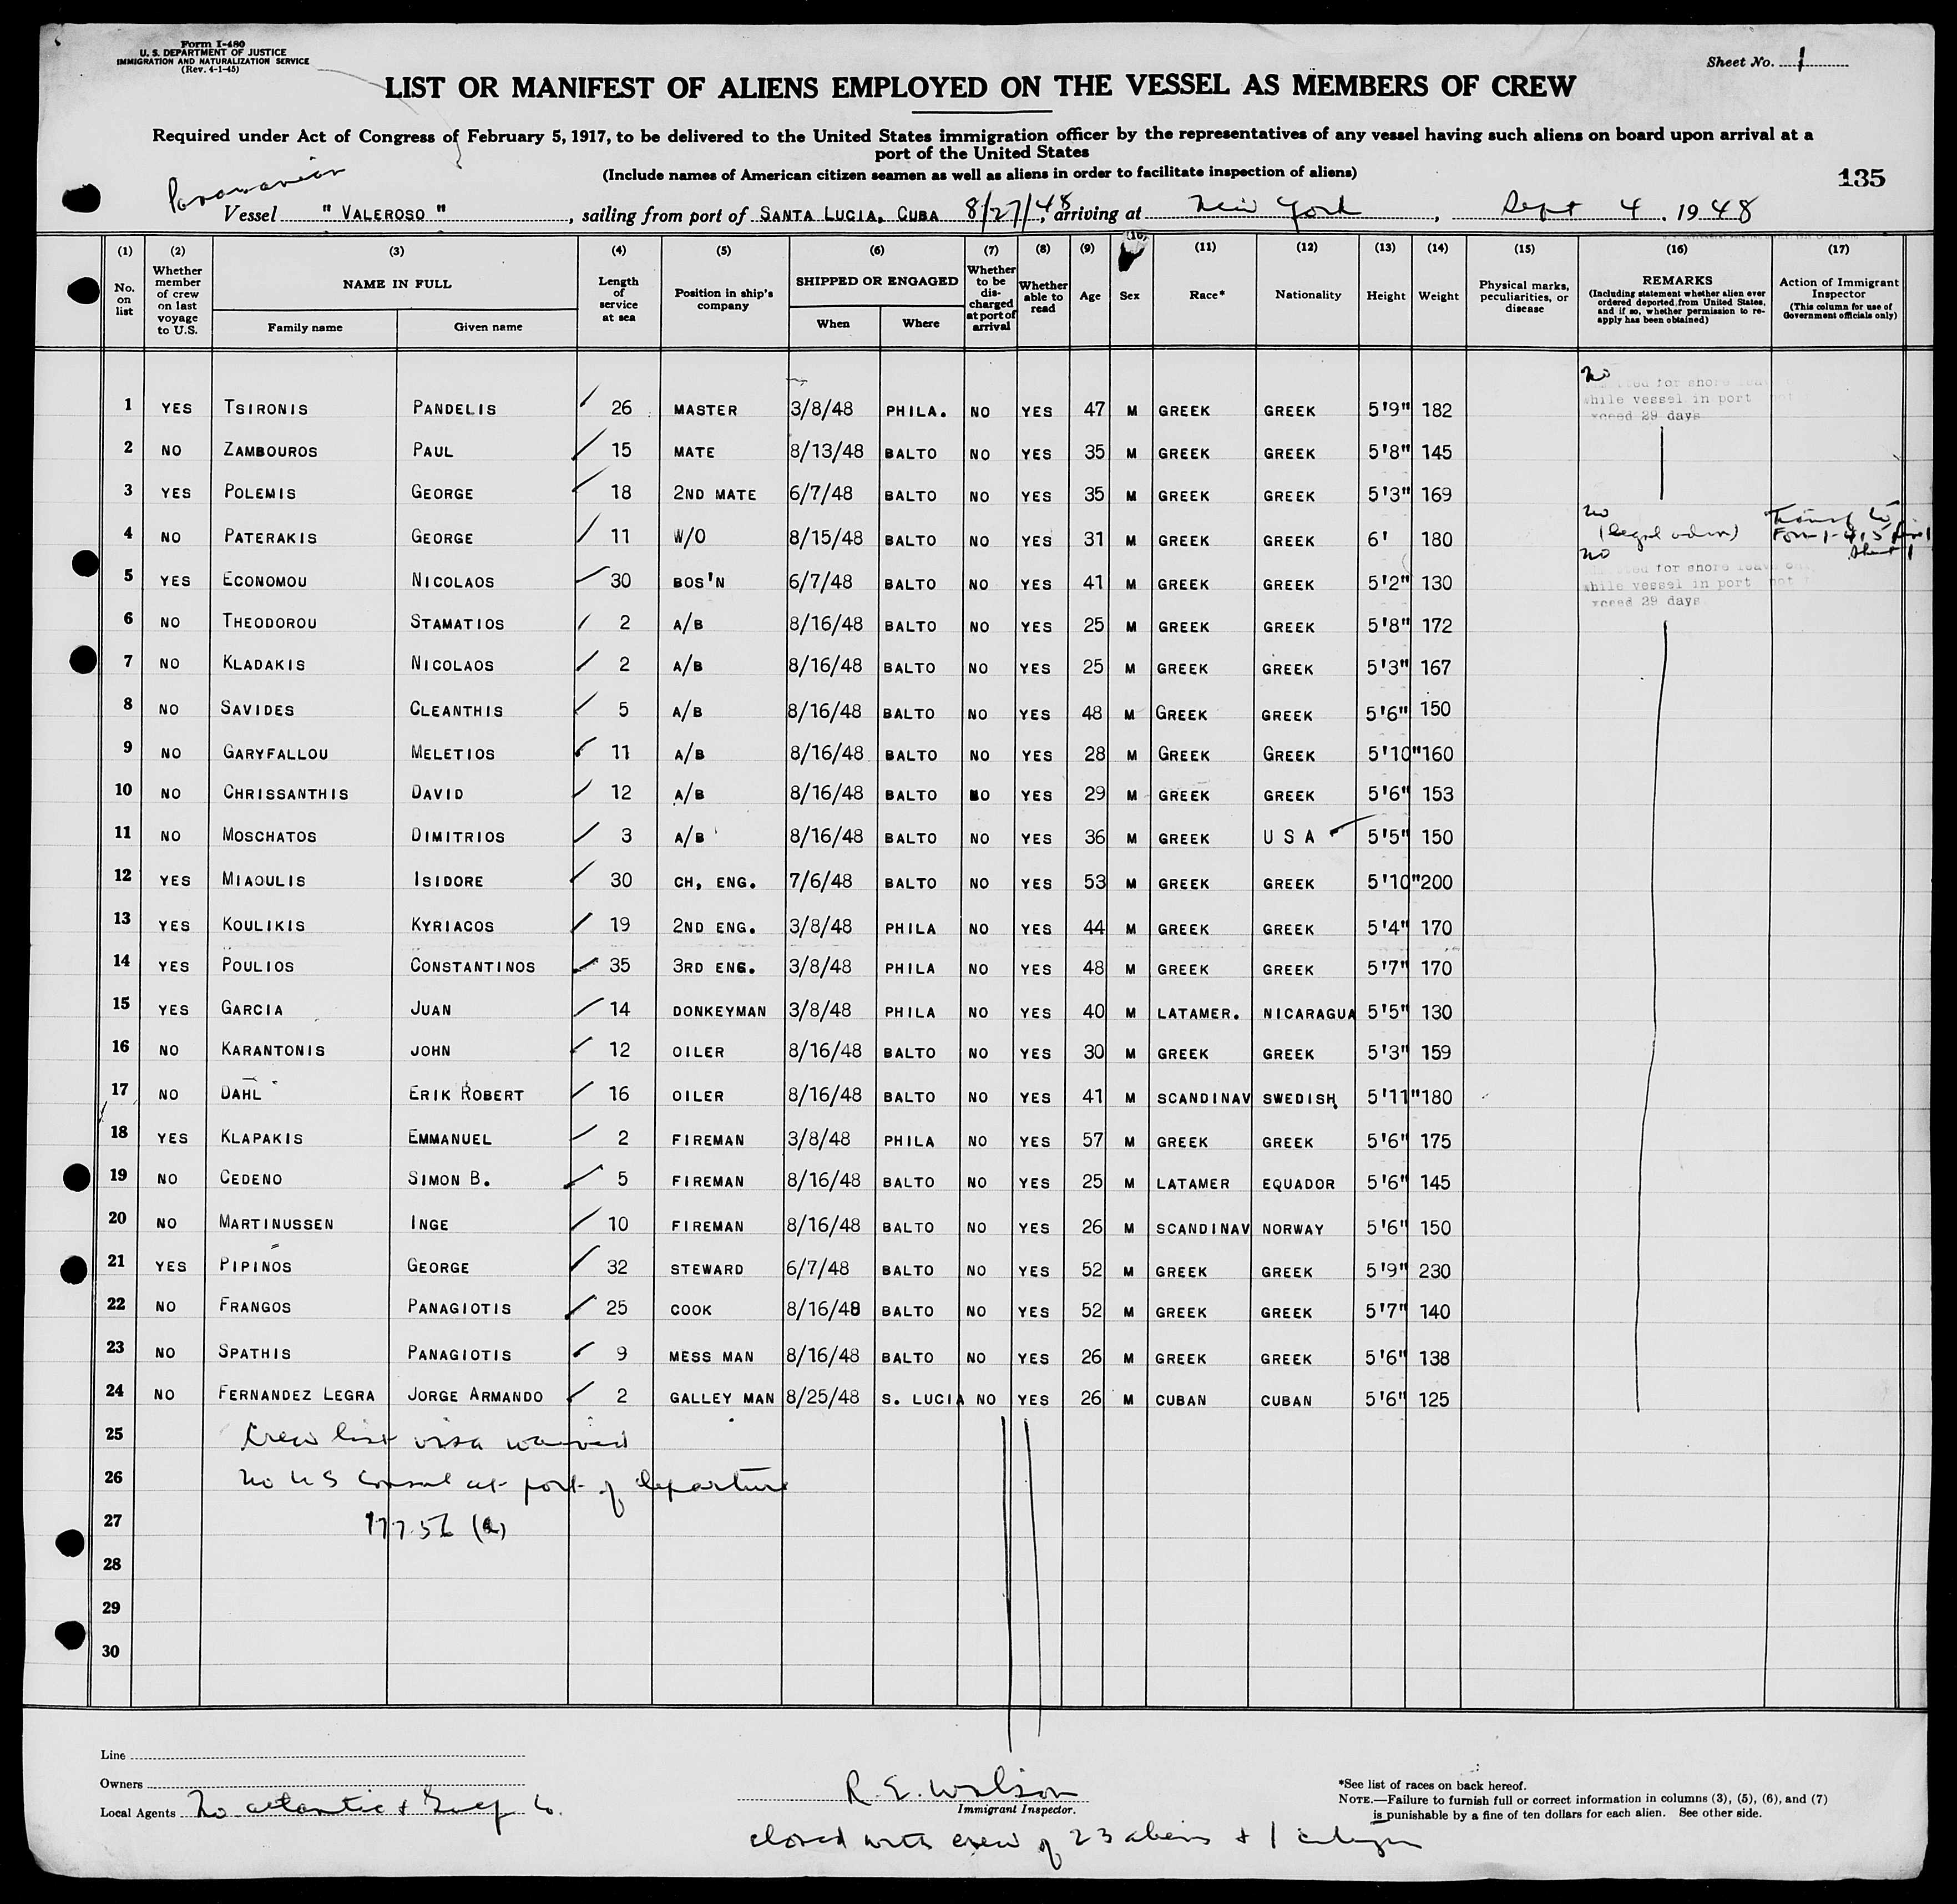 Form I-480
U. S. DEPARTMENT OF JUSTICE
IMMIGRATION AND NATURALIZATION SERVICE
(Rev. 4-1-45)
Sheet No. 1
LIST OR MANIFEST OF ALIENS EMPLOYED ON THE VESSEL AS MEMBERS OF CREW
Required under Act of Congress of February 5, 1917, to be delivered to the United States immigration officer by the representatives of any vessel having such aliens on board upon arrival at a
port of the United States
(Include names of American citizen seamen as well as aliens in order to facilitate inspection of aliens)
135
Panamanian
Vessel "VALEROSO", sailing from port of SANTA LUCIA, CUBA 8/27/48, arriving at New York, Sept 4, 1948
(1) (2) (3) (4) (5) (6) (7) (8) (9) (10) (11) (12) (13) (14) (15) (16) (17)
No. on list
Whether member of crew on last voyage to U.S.
NAME IN FULL
Family name
Given name
Length of service at sea
Position in ship's company
SHIPPED OR ENGAGED
When
Where
Whether to be discharged at port of arrival
Whether able to read
Age
Sex
Race*
Nationality
Height
Weight
Physical marks, peculiarities, or disease
REMARKS
(Including statement whether alien ever ordered deported from United States, and if so, whether permission to reapply has been obtained)
Action of Immigrant Inspector
(This column for use of Government officials only)
no
for shore leave
while vessel in port not
exceed 29 days
1 YES TSIRONIS PANDELIS 26 MASTER 3/8/48 PHILA. NO YES 47 M GREEK GREEK 5'9" 182
2 NO ZAMBOUROS PAUL 15 MATE 8/13/48 BALTO NO YES 35 M GREEK GREEK 5'8" 145
3 YES POLEMIS GEORGE 18 2ND MATE 6/7/48 BALTO NO YES 35 M GREEK GREEK 5'3" 169
4 NO PATERAKIS GEORGE 11 W/O 8/15/48 BALTO NO YES 31 M GREEK GREEK 6' 180 no
5 YES ECONOMOU NICOLAOS 30 BOS'N 6/7/48 BALTO NO YES 41 M GREEK GREEK 5'2" 130 no
for shore leave
while vessel in port not
exceed 29 days
6 NO THEODOROU STAMATIOS 2 A/B 8/16/48 BALTO NO YES 25 M GREEK GREEK 5'8" 172
7 NO KLADAKIS NICOLAOS 2 A/B 8/16/48 BALTO NO YES 25 M GREEK GREEK 5'3" 167
8 NO SAVIDES CLEANTHIS 5 A/B 8/16/48 BALTO NO YES 48 M GREEK GREEK 5'6" 150
9 NO GARYFALLOU MELETIOS 11 A/B 8/16/48 BALTO NO YES 28 M GREEK GREEK 5'10" 160
10 NO CHRISSANTHIS DAVID 12 A/B 8/16/48 BALTO NO YES 29 M GREEK GREEK 5'6" 153
11 NO MOSCHATOS DIMITRIOS 3 A/B 8/16/48 BALTO NO YES 36 M GREEK U S A 5'5" 150
12 YES MIAOULIS ISIDORE 30 CH, ENG. 7/6/48 BALTO NO YES 53 M GREEK GREEK 5'10" 200
13 YES KOULIKIS KYRIACOS 19 2ND ENG. 3/8/48 PHILA NO YES 44 M GREEK GREEK 5'4" 170
14 YES POULIOS CONSTANTINOS 35 3RD ENG. 3/8/48 PHILA NO YES 48 M GREEK GREEK 5'7" 170
15 YES GARCIA JUAN 14 DONKEYMAN 3/8/48 PHILA NO YES 40 M LATAMER. NICARAGUA 5'5" 130
16 NO KARANTONIS JOHN 12 OILER 8/16/48 BALTO NO YES 30 M GREEK GREEK 5'3" 159
17 NO DAHL ERIK ROBERT 16 OILER 8/16/48 BALTO NO YES 41 M SCANDINAV SWEDISH 5'11" 180
18 YES KLAPAKIS EMMANUEL 2 FIREMAN 3/8/48 PHILA NO YES 57 M GREEK GREEK 5'6" 175
19 NO CEDENO SIMON B. 5 FIREMAN 8/16/48 BALTO NO YES 25 M LATAMER EQUADOR 5'6" 145
20 NO MARTINUSSEN INGE 10 FIREMAN 8/16/48 BALTO NO YES 26 M SCANDINAV NORWAY 5'6" 150
21 YES PIPINOS GEORGE 32 STEWARD 6/7/48 BALTO NO YES 52 M GREEK GREEK 5'9" 230
22 NO FRANGOS PANAGIOTIS 25 COOK 8/16/48 BALTO NO YES 52 M GREEK GREEK 5'7" 140
23 NO SPATHIS PANAGIOTIS 9 MESS MAN 8/16/48 BALTO NO YES 26 M GREEK GREEK 5'6" 138
24 NO FERNANDEZ LEGRA JORGE ARMANDO 2 GALLEY MAN 8/25/48 S. LUCIA NO YES 26 M CUBAN CUBAN 5'6" 125
25 Crew list visa waived
26 no U S Consul at port of departure
27 177.56 (a)
28
29
30
Line
Owners
Local Agents No Atlantic & Gulf Co.
R. E. Wilson
Immigrant Inspector.
closed with crew of 23 aliens & 1 citizen
*See list of races on back hereof.
NOTE.—Failure to furnish full or correct information in columns (3), (5), (6), and (7)
is punishable by a fine of ten dollars for each alien. See other side.